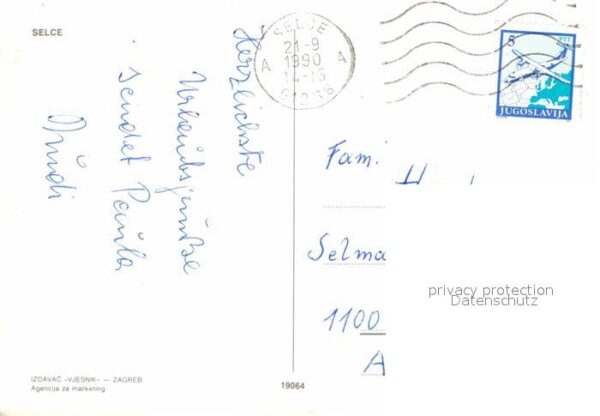 SELCE
Herzlichste
Urlaubsgrüße
sendet Paula
SELCE
21-9
1990
14-15
A A
PTT
5
JUGOSLAVIJA
Fam.
Selma
1100
A
privacy protection
Datenschutz
IZDAVAČ «VJESNIK» — ZAGREB
Agencija za marketing
19064